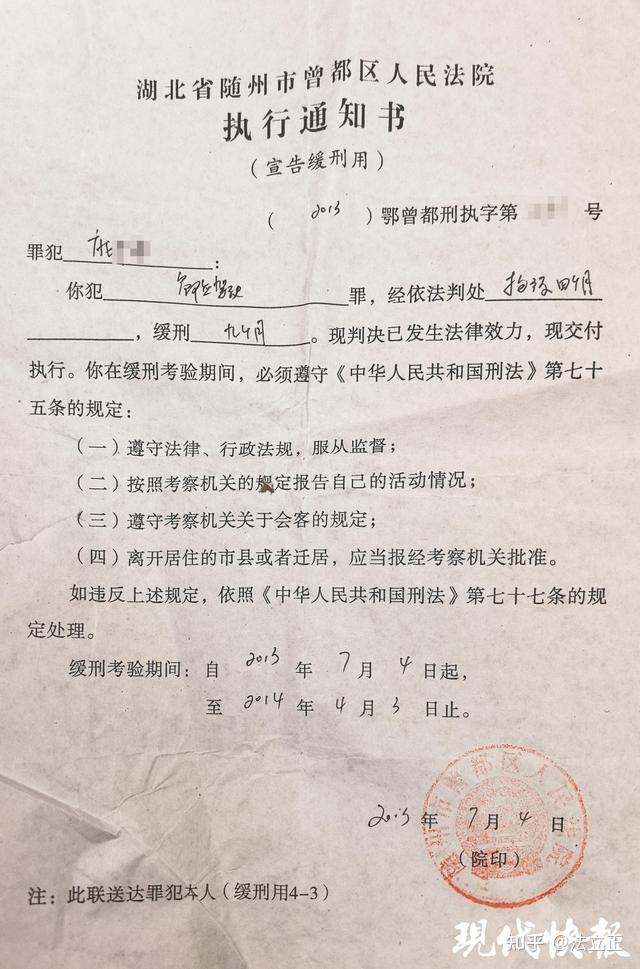 湖北省随州市曾都区人民法院
执行通知书
（宣告缓刑用）
（ 2013 ）鄂曾都刑执字第 号
罪犯
你犯 危险驾驶 罪，经依法判处 拘役四个月
，缓刑 九个月 。现判决已发生法律效力，现交付
执行。你在缓刑考验期间，必须遵守《中华人民共和国刑法》第七十
五条的规定：
（一）遵守法律、行政法规，服从监督；
（二）按照考察机关的规定报告自己的活动情况；
（三）遵守考察机关关于会客的规定；
（四）离开居住的市县或者迁居，应当报经考察机关批准。
如违反上述规定，依照《中华人民共和国刑法》第七十七条的规
定处理。
缓刑考验期间：自 2013 年 7 月 4 日起，
至 2014 年 4 月 3 日止。
随州市曾都区人民法院
2013 年 7 月 4 日
（院印）
注：此联送达罪犯本人（缓刑用4-3）
现代快报
知乎 @法立正